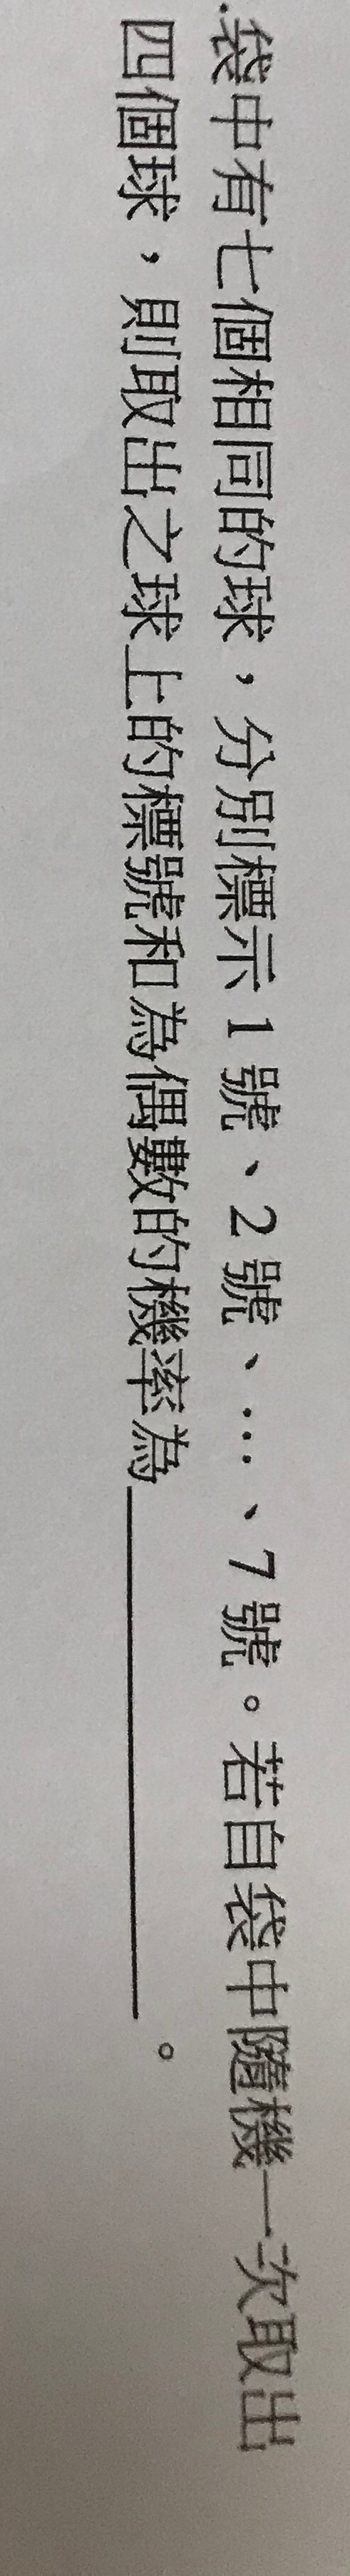 .袋中有七個相同的球，分別標示1號、2號、…、7號。若自袋中隨機一次取出
四個球，則取出之球上的標號和為偶數的機率為＿＿＿＿＿＿。